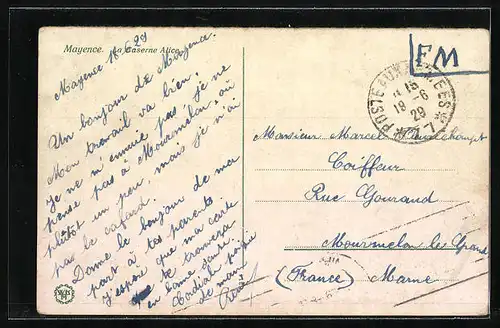 Mayence. La Caserne Alice.
Mayence 18/6/29
Un bonjour de Mayence.
Mon travail va bien.
Je ne m'ennuie pas, je ne
pense pas à Mourmelon, ou
plutôt un peu, mais je n'ai
pas le cafard.
Donne le bonjour de ma
part à tes parents
J'espère que ma carte
te trouvera
en bonne santé.
Cordiale poignée
de main
René
FM
POSTE AUX ARMEES
18-6
29
Monsieur Marcel
Coiffeur
Rue Gouraud
Mourmelon le Grand
(France) Marne